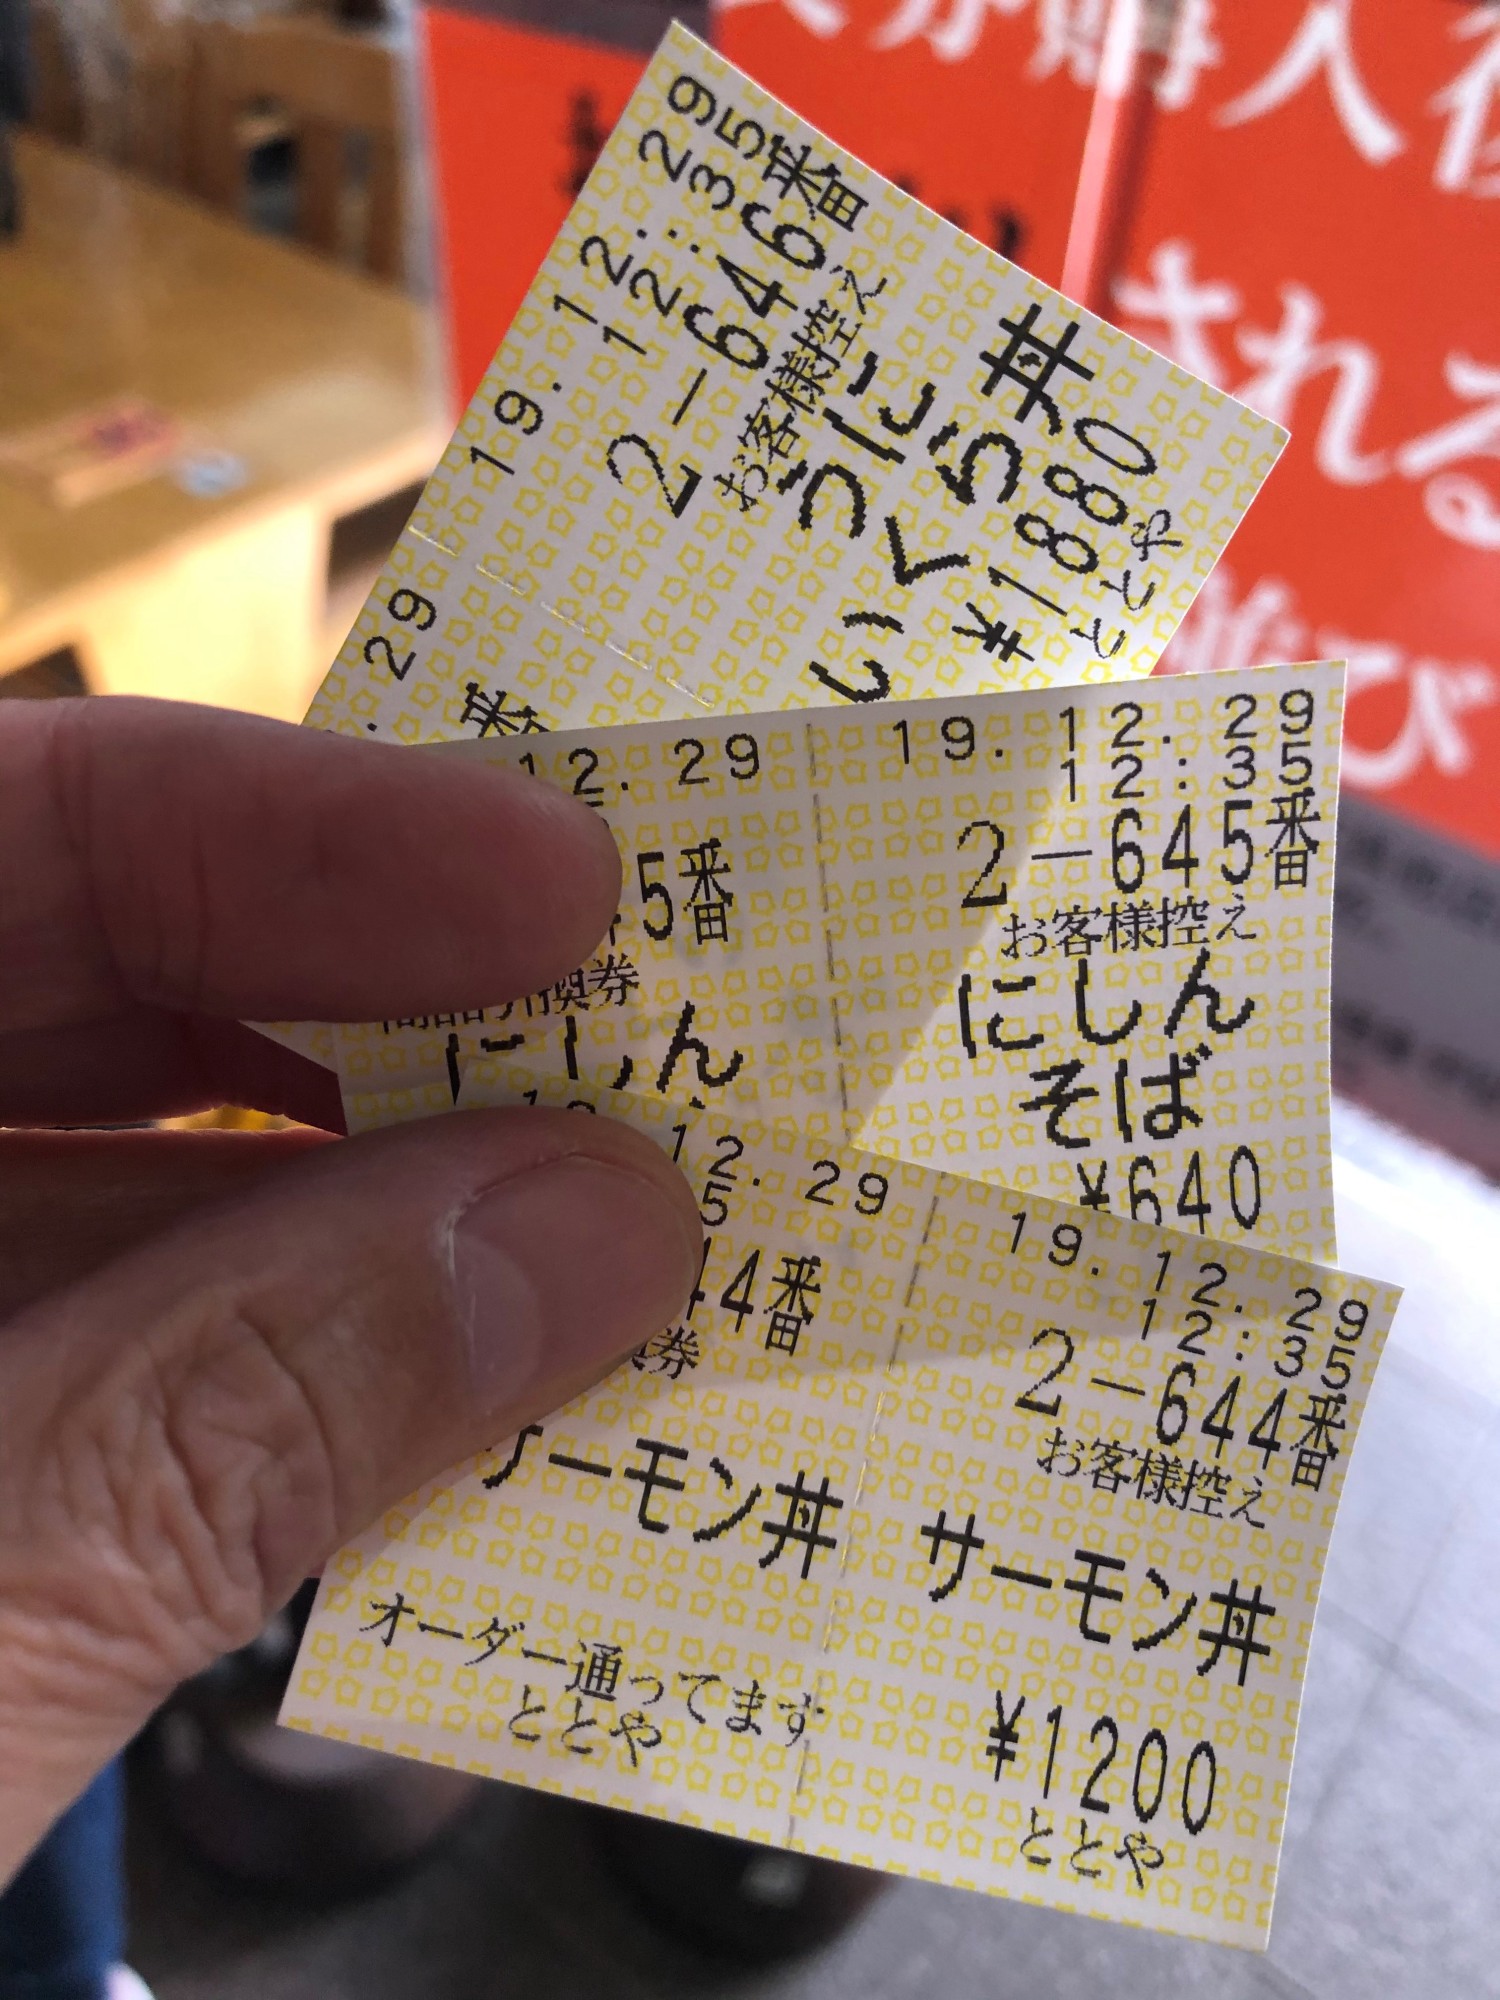 19.12.29
12:35
2-646番
お客様控え
うに
いくら丼
¥1880
ととや
29
番
12.29
5番
商品引換券
にしん
19.12.29
12:35
2-645番
お客様控え
にしん
そば
¥640
12.29
5
44番
換券
サーモン丼
オーダー通ってます
ととや
19.12.29
12:35
2-644番
お客様控え
サーモン丼
¥1200
ととや
購入後
される
並び